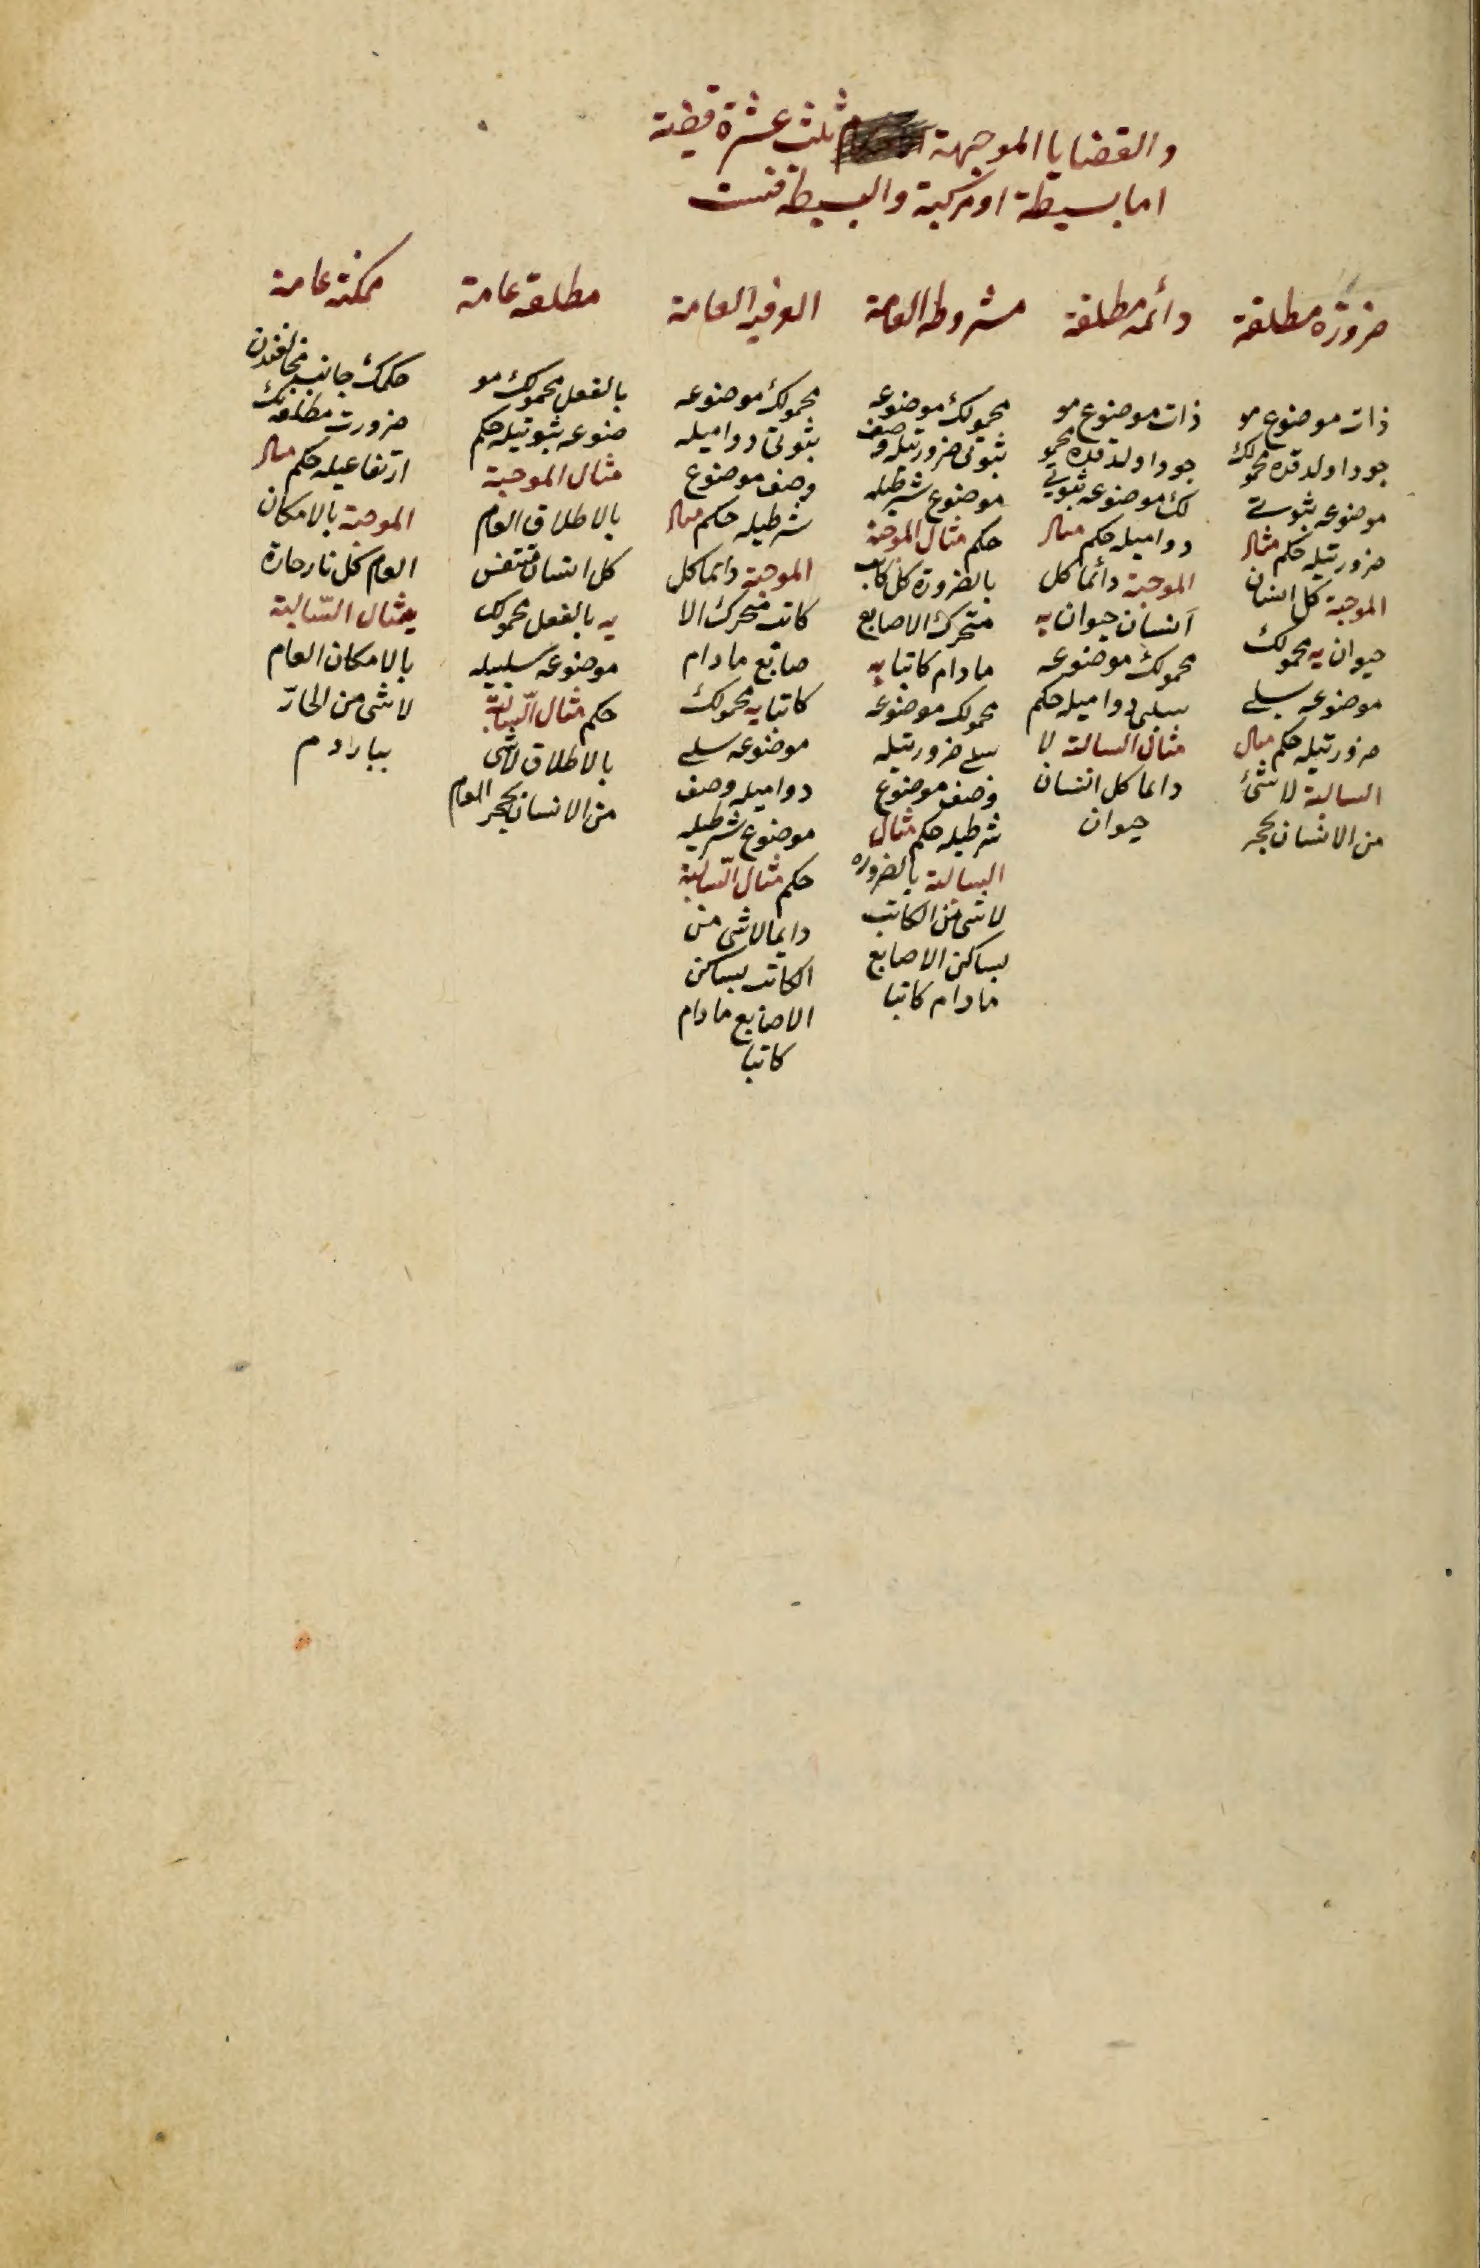 والقضايا الموجهة ثلث عشرة قضية
اما بسيطة او مركبة والبسيطة فست
ضرورة مطلقة
ذات موضوع مو
جود اولدقده محمولك
موضوعه ثبوتى
ضرورتيله حكم مثال
الموجبة كل انسان
حيوان يه محمولك
موضوعه سلبى
ضرورتيله حكم مثال
السالبة لا شئ
من الانسان بحجر
دائمه مطلقة
ذات موضوع مو
جود اولدقده محمو
لك موضوعه ثبوتى
دواميله حكم مثال
الموجبة دائما كل
انسان حيوان يه
محمولك موضوعه
سلبى دواميله حكم
مثال السالبة لا
دائما كل انسان
حيوان
مشروطه العامة
محمولك موضوعه
ثبوتى ضرورتيله وصف
موضوع شرطيله
حكم مثال الموجبة
بالضرورة كل كاتب
متحرك الاصابع
مادام كاتبا يه
محمولك موضوعه
سلبى ضرورتيله
وصف موضوع
شرطيله حكم مثال
السالبة بالضروره
لا شى من الكاتب
بساكن الاصابع
مادام كاتبا
العرفية العامة
محمولك موضوعه
ثبوتى دواميله
وصف موضوع
شرطيله حكم مثال
الموجبة دائما كل
كاتب متحرك الا
صابع مادام
كاتبا يه محمولك
موضوعه سلبى
دواميله وصف
موضوع شرطيله
حكم مثال السّالبة
دايما لا شى من
الكاتب بساكن
الاصابع مادام
كاتبا
مطلقه عامة
بالفعل محمولك مو
ضوعه ثبوتيله حكم
مثال الموجبة
بالاطلاق العام
كل انسان متنفس
يه بالفعل محمولك
موضوعه سلبيله
حكم مثال السّالبة
بالاطلاق لا شى
من الانسان بحجر العام
ممكنه عامة
حكمك جانب مخالفندن
ضرورت مطلقه نك
ارتفاعيله حكم مثال
الموجبة بالامكان
العام كل نار حارة
يه مثال السّالبة
بالامكان العام
لا شى من الحارّ
ببارد م